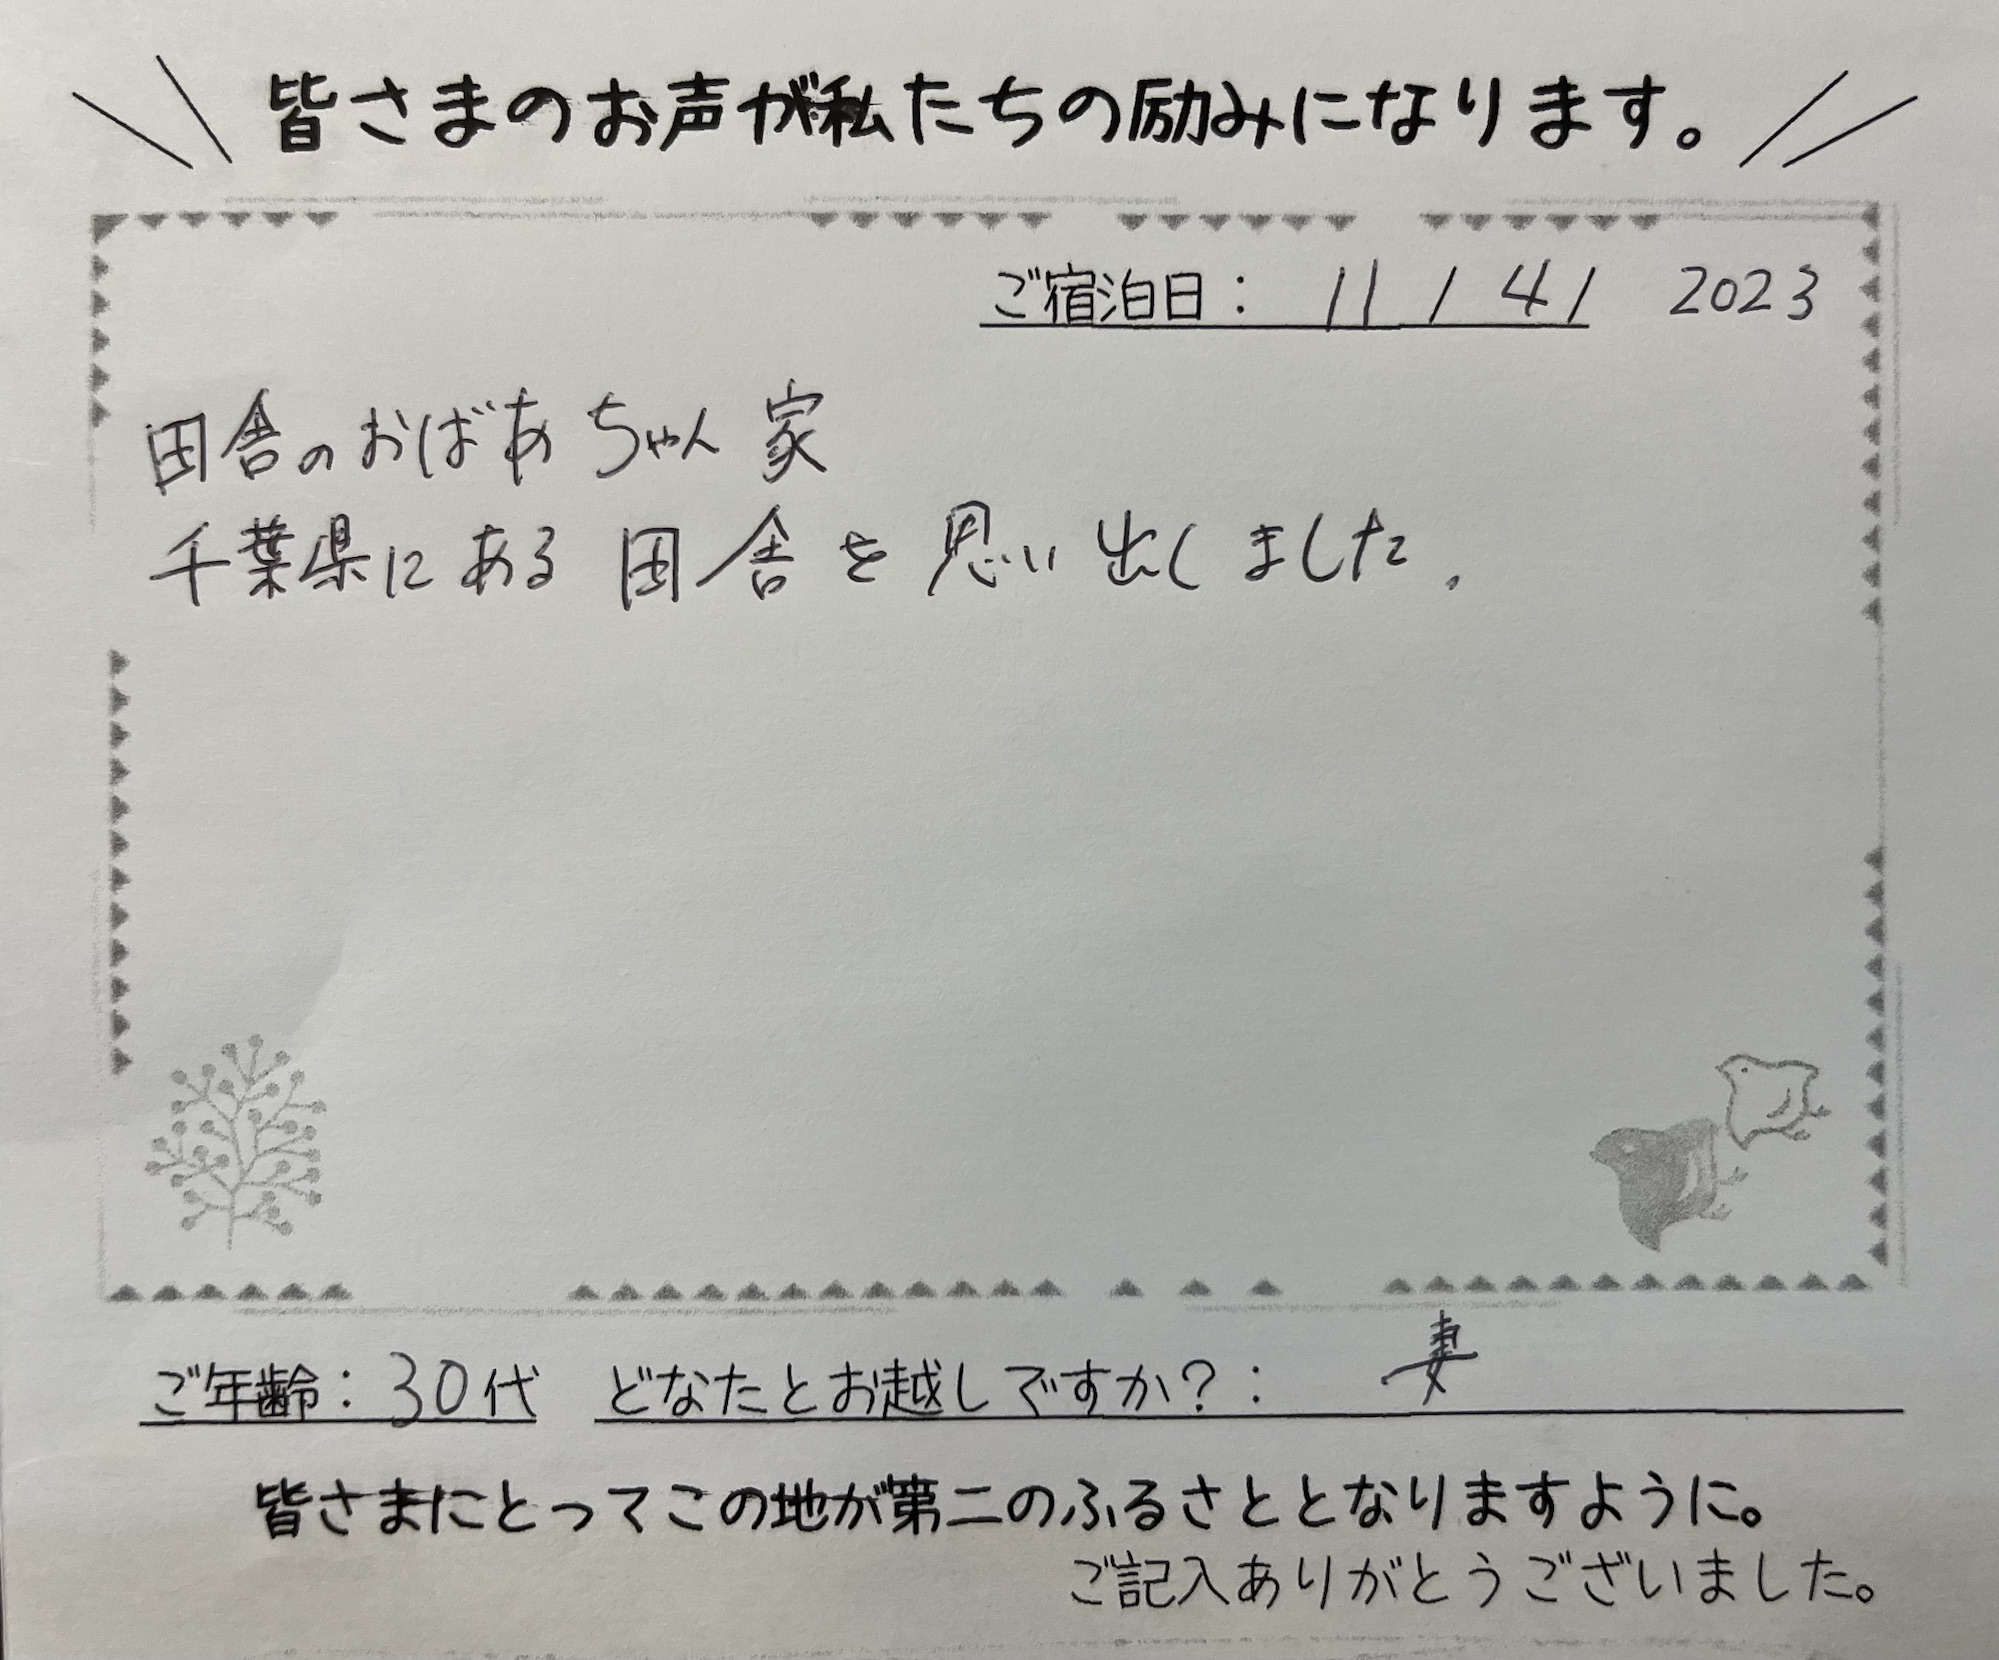 皆さまのお声が私たちの励みになります。
ご宿泊日： 11 / 4 / 2023
田舎のおばあちゃん家
千葉県にある田舎を思い出しました.
ご年齢：30代 どなたとお越しですか？： 妻
皆さまにとってこの地が第二のふるさととなりますように。
ご記入ありがとうございました。